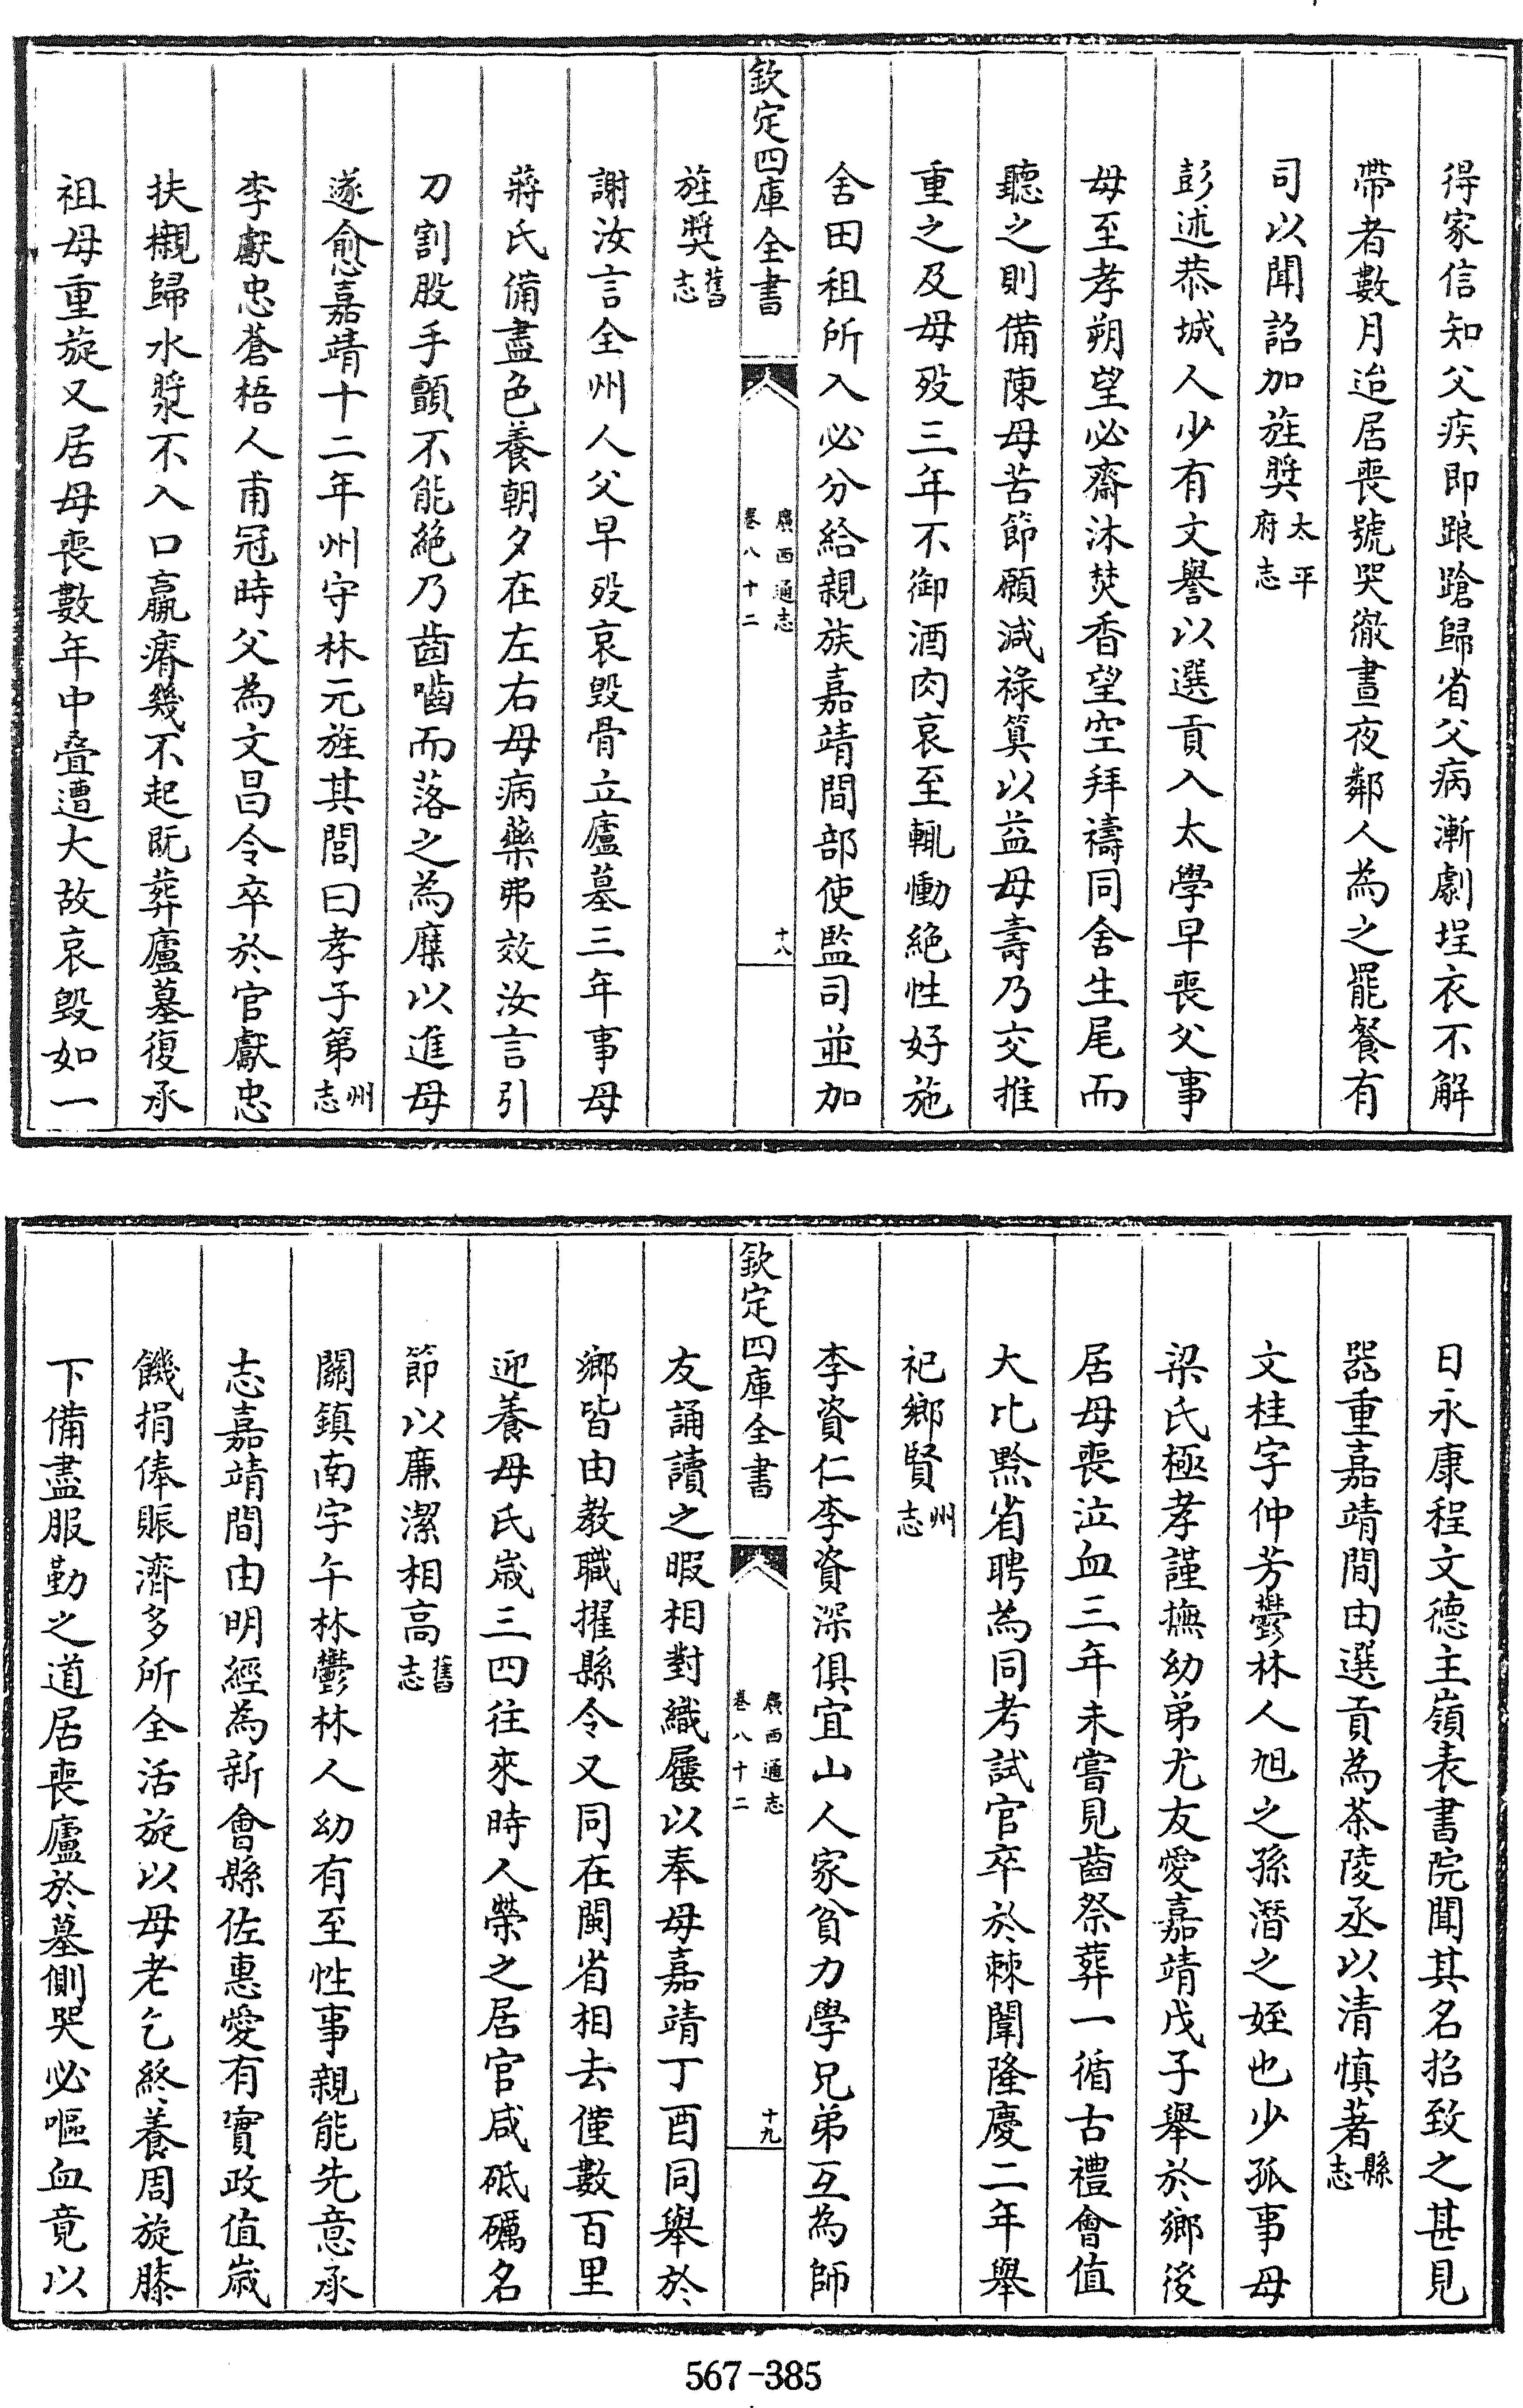 得家信知父疾即踉蹌歸省父病漸劇埕衣不解
帶者數月迨居喪號哭徹晝夜鄰人為之罷餐有
司以聞詔加旌奬太平府志
彭述恭城人少有文譽以選貢入太學早喪父事
母至孝朔望必齋沐焚香望空拜禱同舍生尾而
聽之則備陳母苦節願減祿筭以益母壽乃交推
重之及母歿三年不御酒肉哀至輒慟絶性好施
舍田租所入必分給親族嘉靖間部使監司並加
欽定四庫全書
廣西通志
卷八十二
十八
旌奬舊志
謝汝言全州人父早歿哀毀骨立廬墓三年事母
蔣氏備盡色養朝夕在左右母病藥弗效汝言引
刀割股手顫不能絶乃齒嚙而落之為糜以進母
遂愈嘉靖十二年州守林元旌其閭曰孝子第州志
李獻忠蒼梧人甫冠時父為文昌令卒於官獻忠
扶櫬歸水漿不入口羸瘠幾不起既葬廬墓復承
祖母重旋又居母喪數年中叠遭大故哀毀如一
日永康程文德主嶺表書院聞其名招致之甚見
器重嘉靖間由選貢為茶陵丞以清慎著縣志
文桂字仲芳鬱林人旭之孫潛之姪也少孤事母
梁氏極孝謹撫幼弟尤友愛嘉靖戊子舉於鄉後
居母喪泣血三年未嘗見齒祭葬一循古禮會值
大比黔省聘為同考試官卒於棘闈隆慶二年舉
祀鄉賢州志
李資仁李資深俱宜山人家貧力學兄弟互為師
欽定四庫全書
廣西通志
卷八十二
十九
友誦讀之暇相對織屨以奉母嘉靖丁酉同舉於
鄉皆由教職擢縣令又同在閩省相去僅數百里
迎養母氏嵗三四往來時人榮之居官咸砥礪名
節以廉潔相高舊志
關鎮南字午林鬱林人幼有至性事親能先意承
志嘉靖間由明經為新會縣佐惠愛有實政值嵗
饑捐俸賑濟多所全活旋以母老乞終養周旋膝
下備盡服勤之道居喪廬於墓側哭必嘔血竟以
567-385